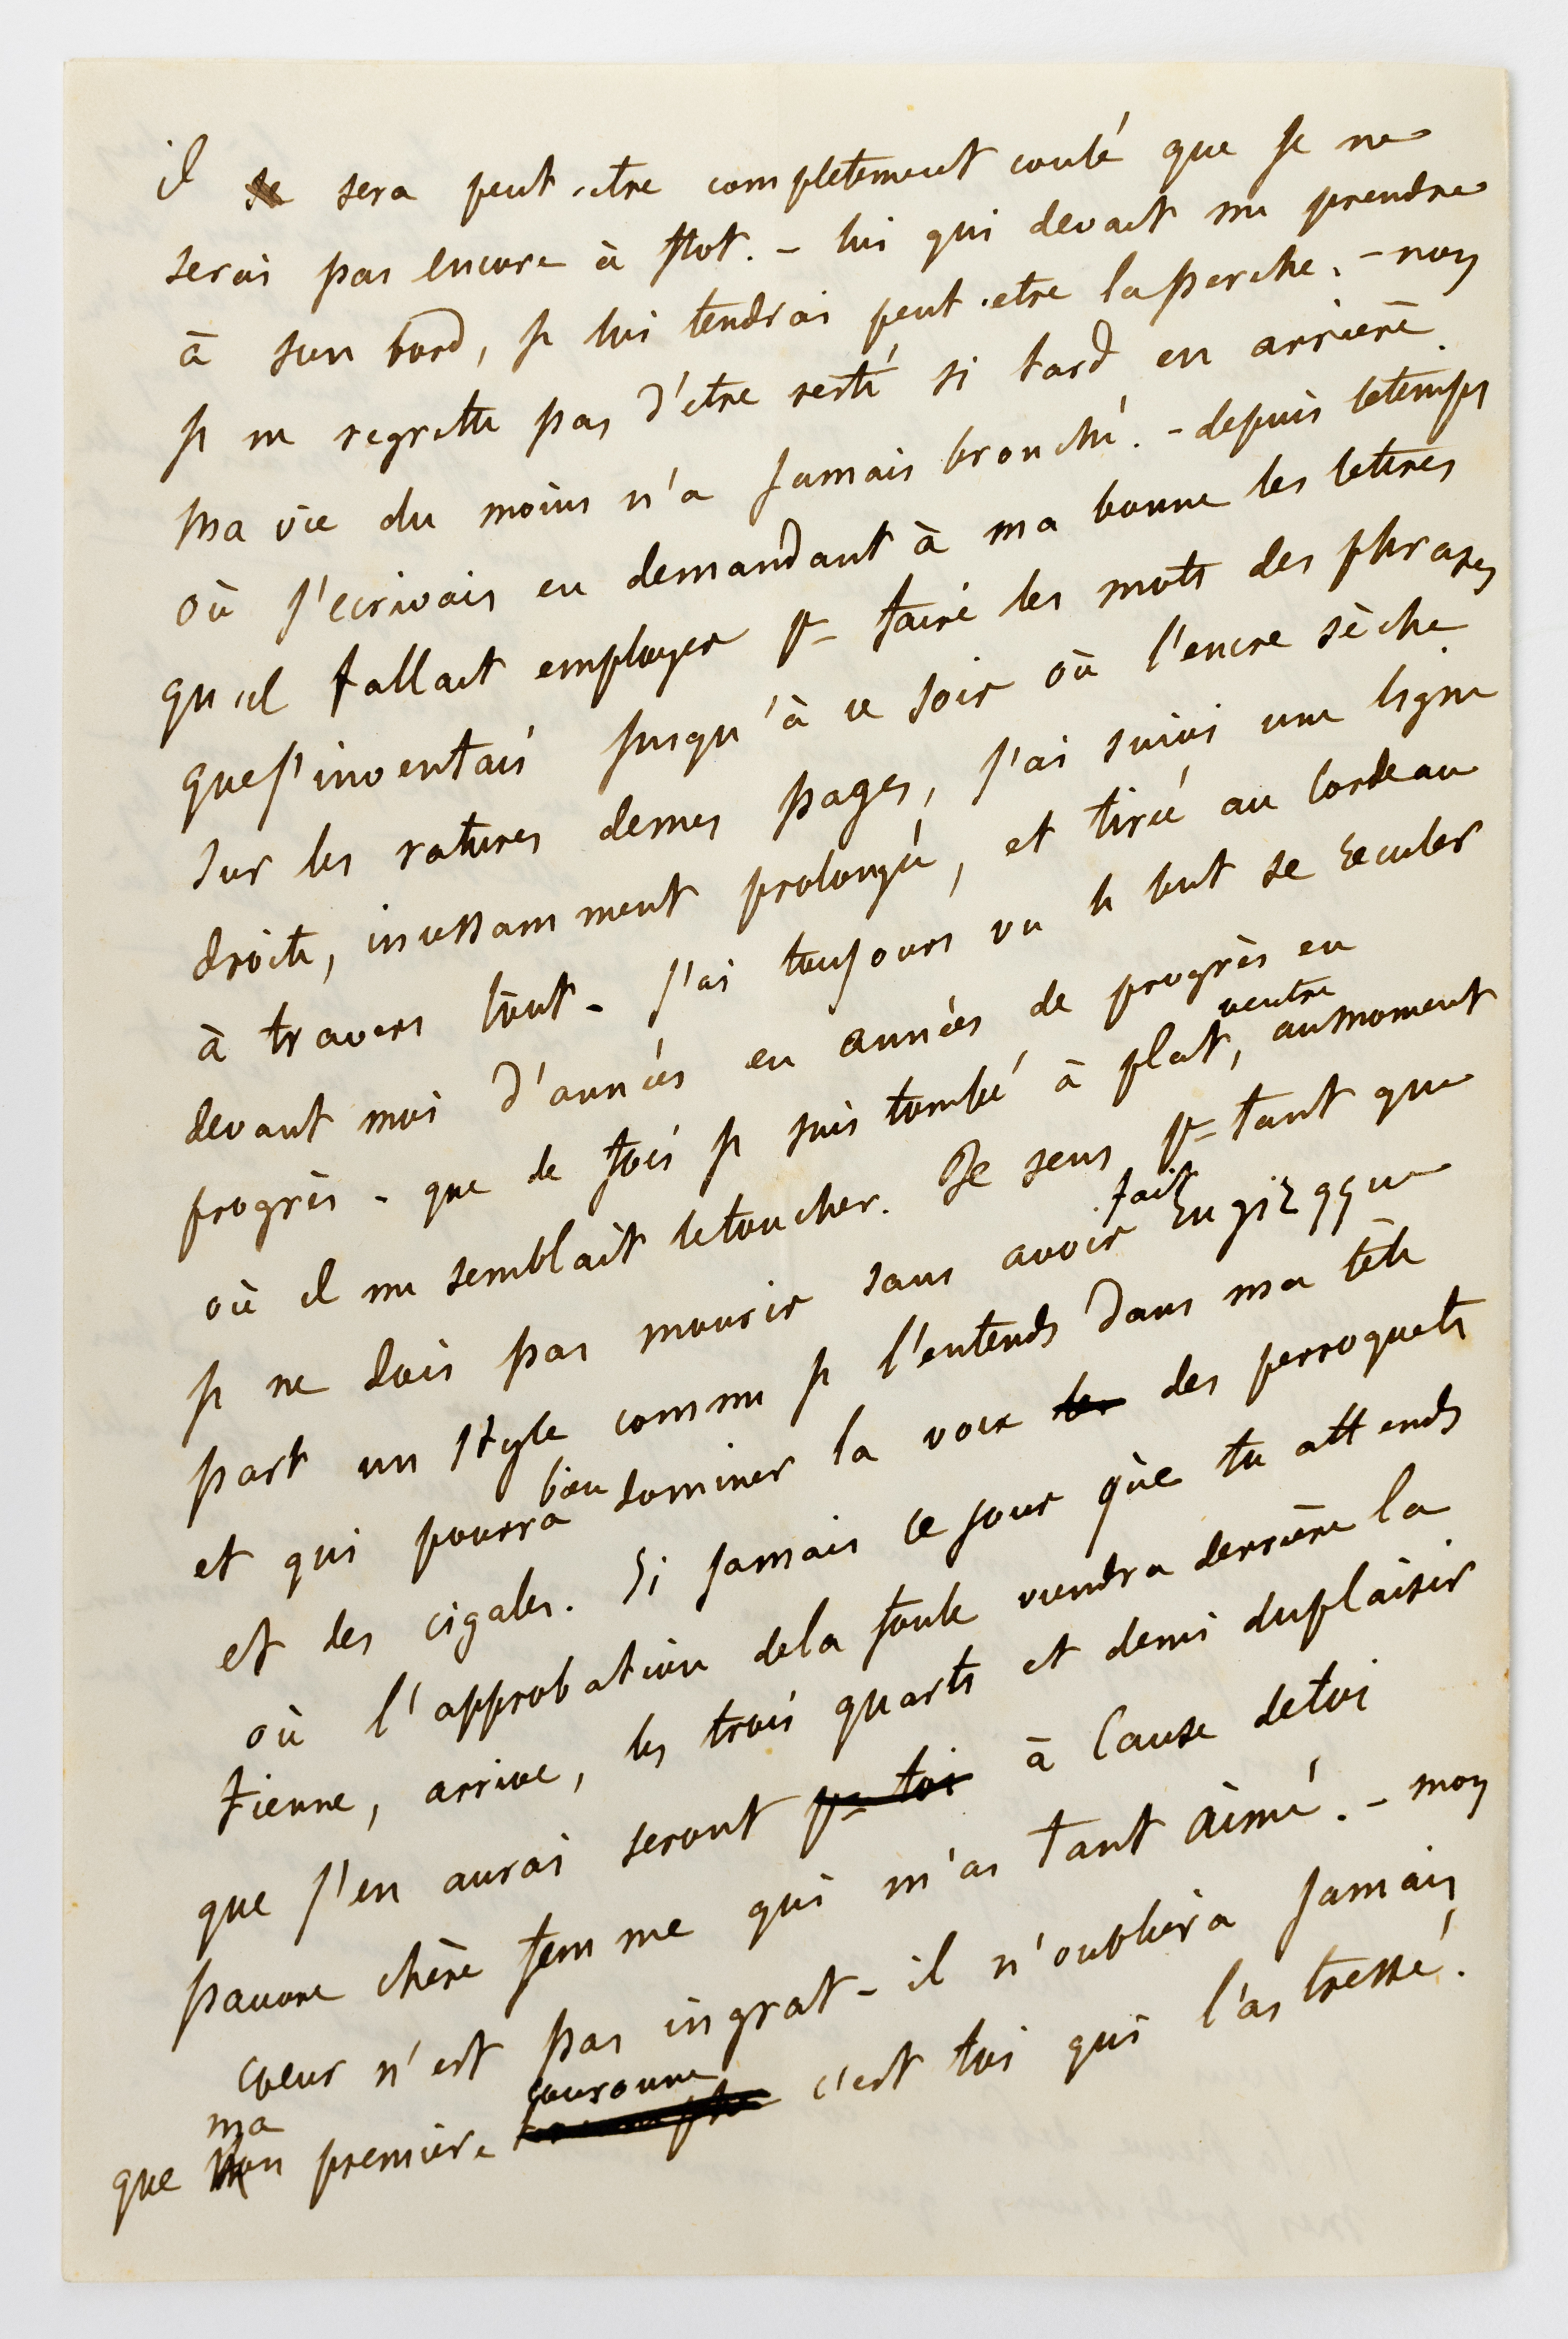 il se sera peut-etre completement coulé que je ne
serai pas encore à flot. – lui qui devait me prendre
à son bord, je lui tendrai peut-etre la perche. – non
je ne regrette pas d'etre resté si tard en arrière.
Ma vie du moins n'a jamais bronché. – depuis le temps
où j'ecrivais en demandant à ma bonne les lettres
qu'il fallait employer pr faire les mots des phrases
que j'inventais jusqu'à ce soir où l'encre sèche
sur les ratures de mes pages, j'ai suivi une ligne
droite, incessamment prolongée, et tirée au cordeau
à travers tout – j'ai toujours vu le but se reculer
devant moi d'années en années de progrès en
progrès – que de fois je suis tombé à plat ventre, au moment
où il me semblait le toucher. Je sens pr tant que
je ne dois pas mourir sans avoir fait rugir qque
part un style comme je l'entends dans ma tête
et qui pourra bien dominer la voix les des perroquets
et des cigales. Si jamais ce jour que tu attends
où l'approbation de la foule viendra derrière la
tienne, arrive, les trois quarts et demi du plaisir
que j'en aurai seront pr toi à cause de toi
pauvre chère femme qui m'as tant aimé. – mon
coeur n'est pas ingrat – il n'oubliera jamais
que mon ma première couronne c'est toi qui l'as tressé.